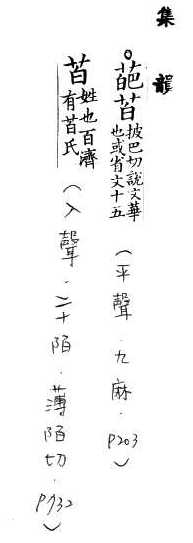 集韻
○葩苩披巴切說文華
也或省文十五
（平聲．九麻．P203）
苩姓也百濟
有苩氏
（入聲．二十陌．薄陌切．P732）